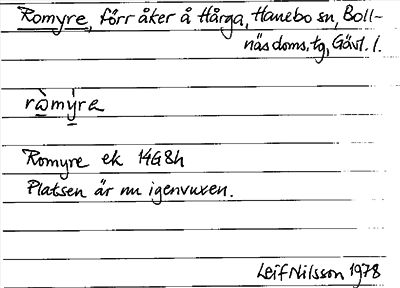 Romyre, förr åker å Hårga, Hanebo sn, Boll-
näs doms. tg, Gävl. l.
ròmýra
Romyre ek 14G8h
Platsen är nu igenvuxen.
Leif Nilsson 1978